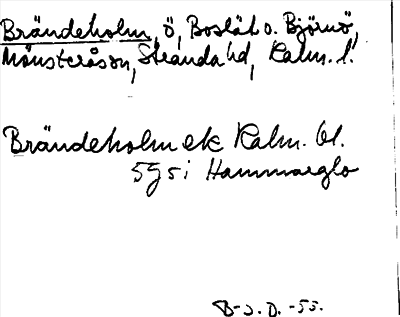 Brändeholm, ö, Boslät o. Björnö,
Mönsteråssn, Stranda hd, Kalm. l.
Brändeholm ek Kalm. bl.
5 g 5 i Hammarglo
B-s. D. -55.